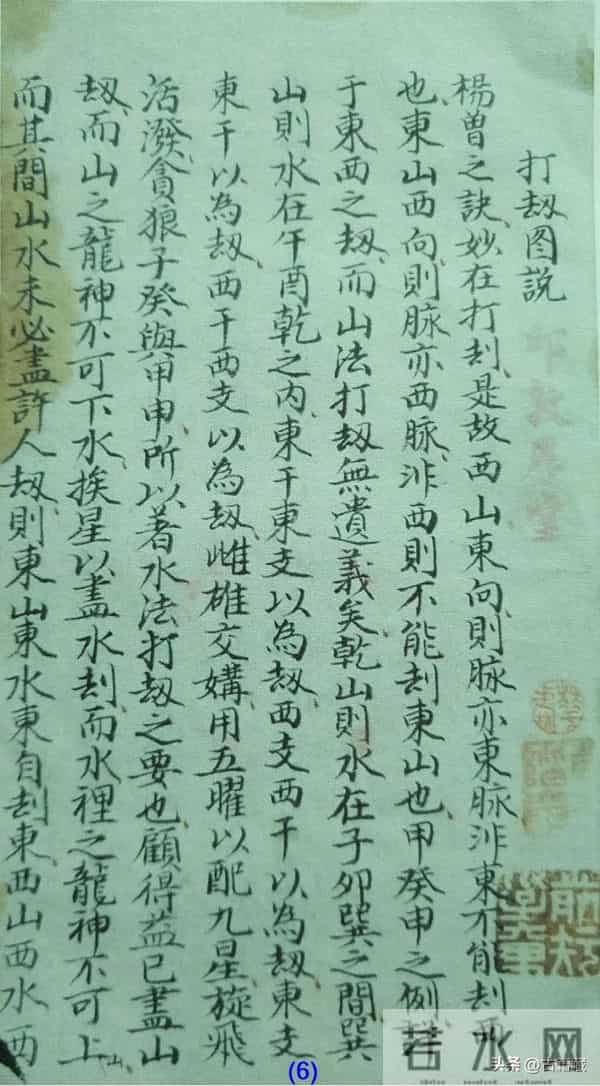 打刼图説
楊曽之訣妙在打刦是故西山東向則脉亦東脉非東不能刦西
也東山西向則脉亦西脉非西則不能刦東山也甲癸申之例
于東西之刼而山法打刼無遺義矣乾山則水在子夘巽之間巽
山則水在午酉乾之内東干東支以為刼西支西干以為刼東支
東干以為刼西干西支以為刼雌雄交媾用五曜以配九星旋飛
活潑貪狼子癸與甲申所以著水法打刼之要也顧得益已盡山
刼而山之龍神不可下水挨星以盡水刦而水裡之龍神不可上山
而其間山水未必盡許人刼則東山東水東自刦東西山西水西
若水网
头条 @古籍藏
(6)